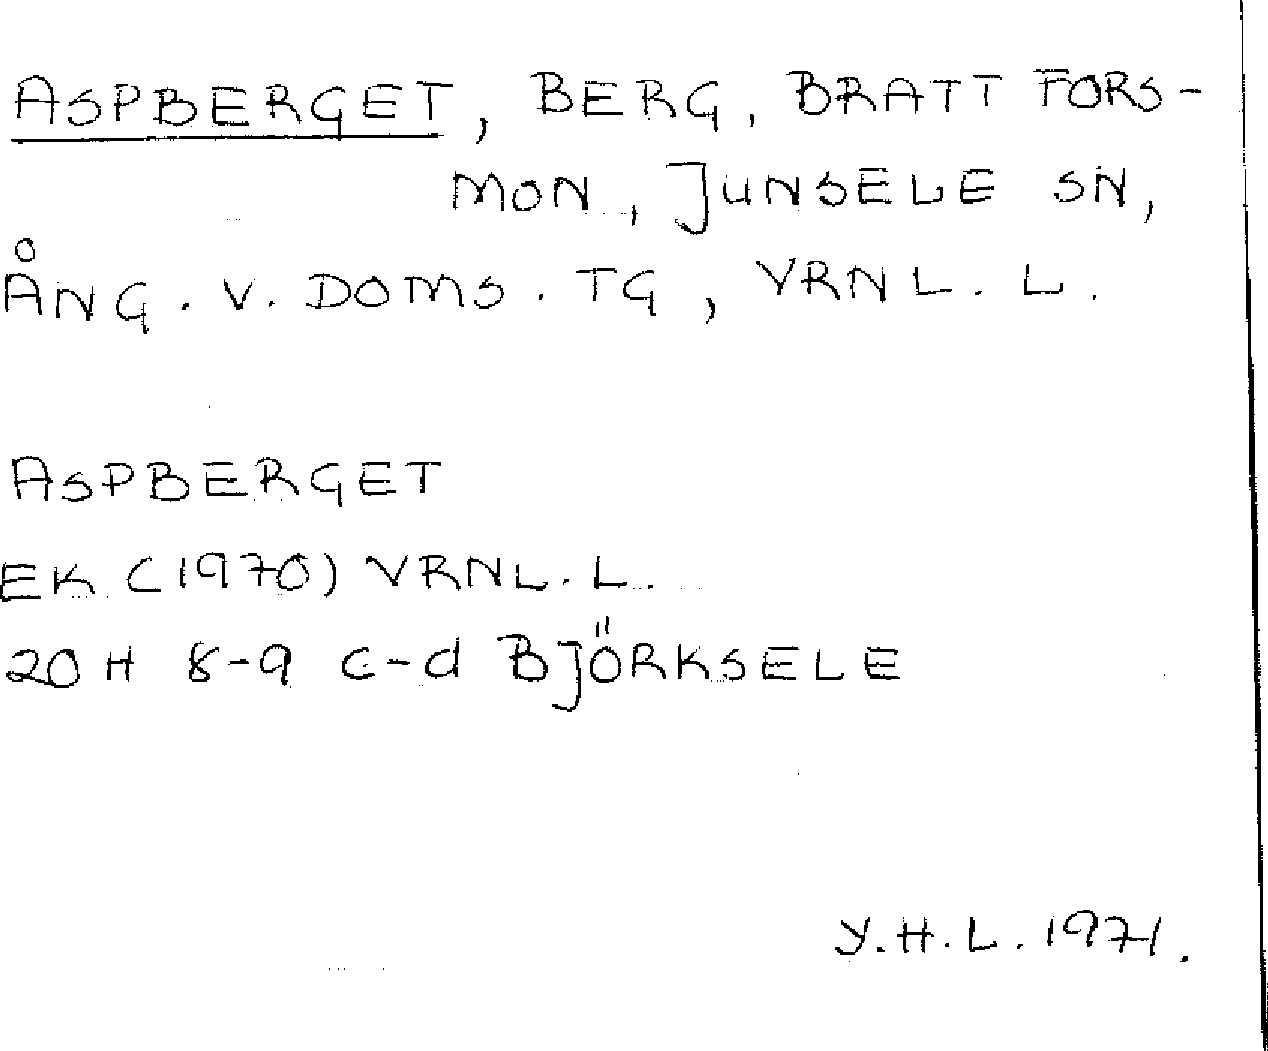 ASPBERGET, BERG, BRATT FORS-
MON, JUNSELE SN,
ÅNG. V. DOMS. TG, VRNL. L.
ASPBERGET
EK (1970) VRNL. L.
20 H 8-9 c-d BJÖRKSELE
Y.H.L. 1971.